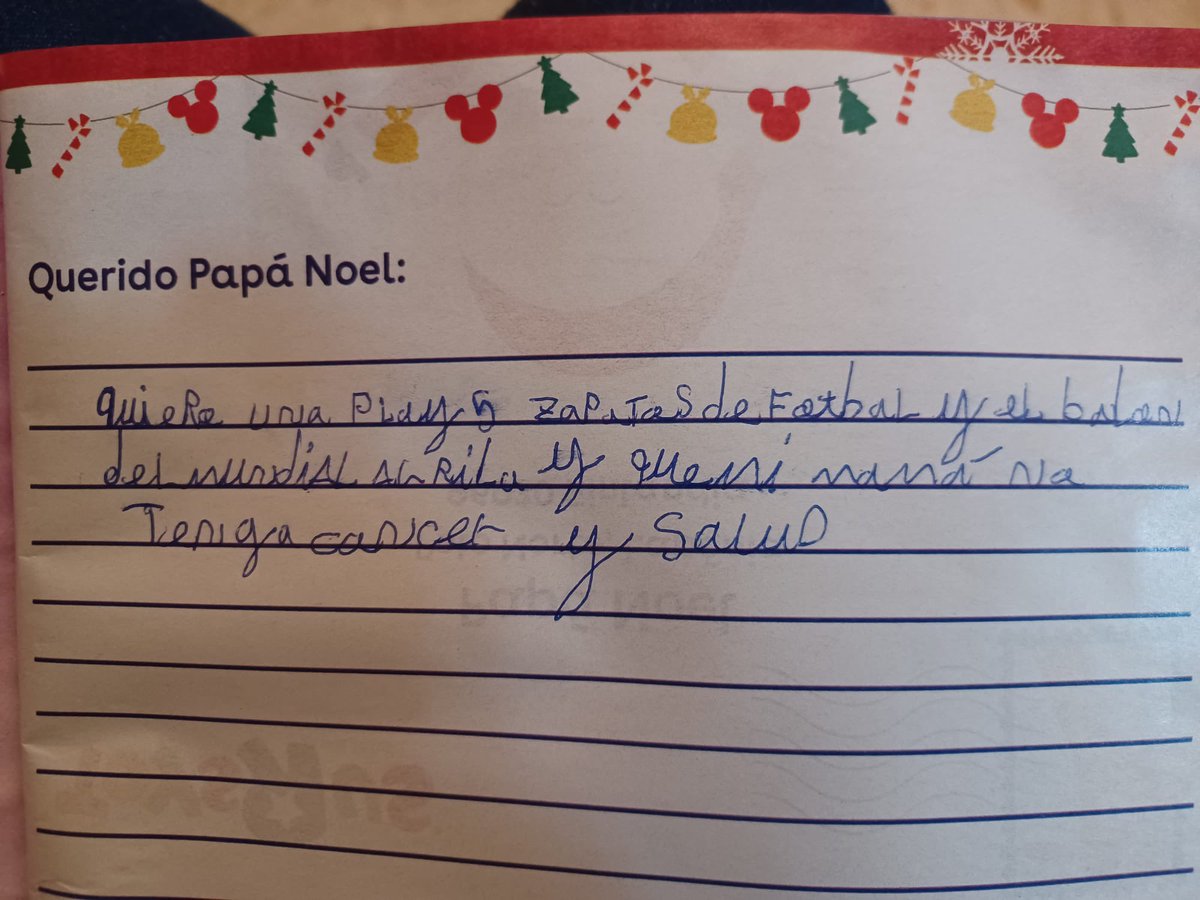 Querido Papá Noel:
quiero una Play 5 zapatos de Fotbal y el balon
del mundial Al Rila y que mi mamá no
Tenga cancer y Salud